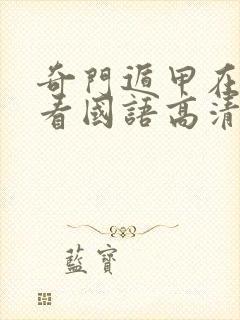 奇門遁甲在
看國語高清
藍寶